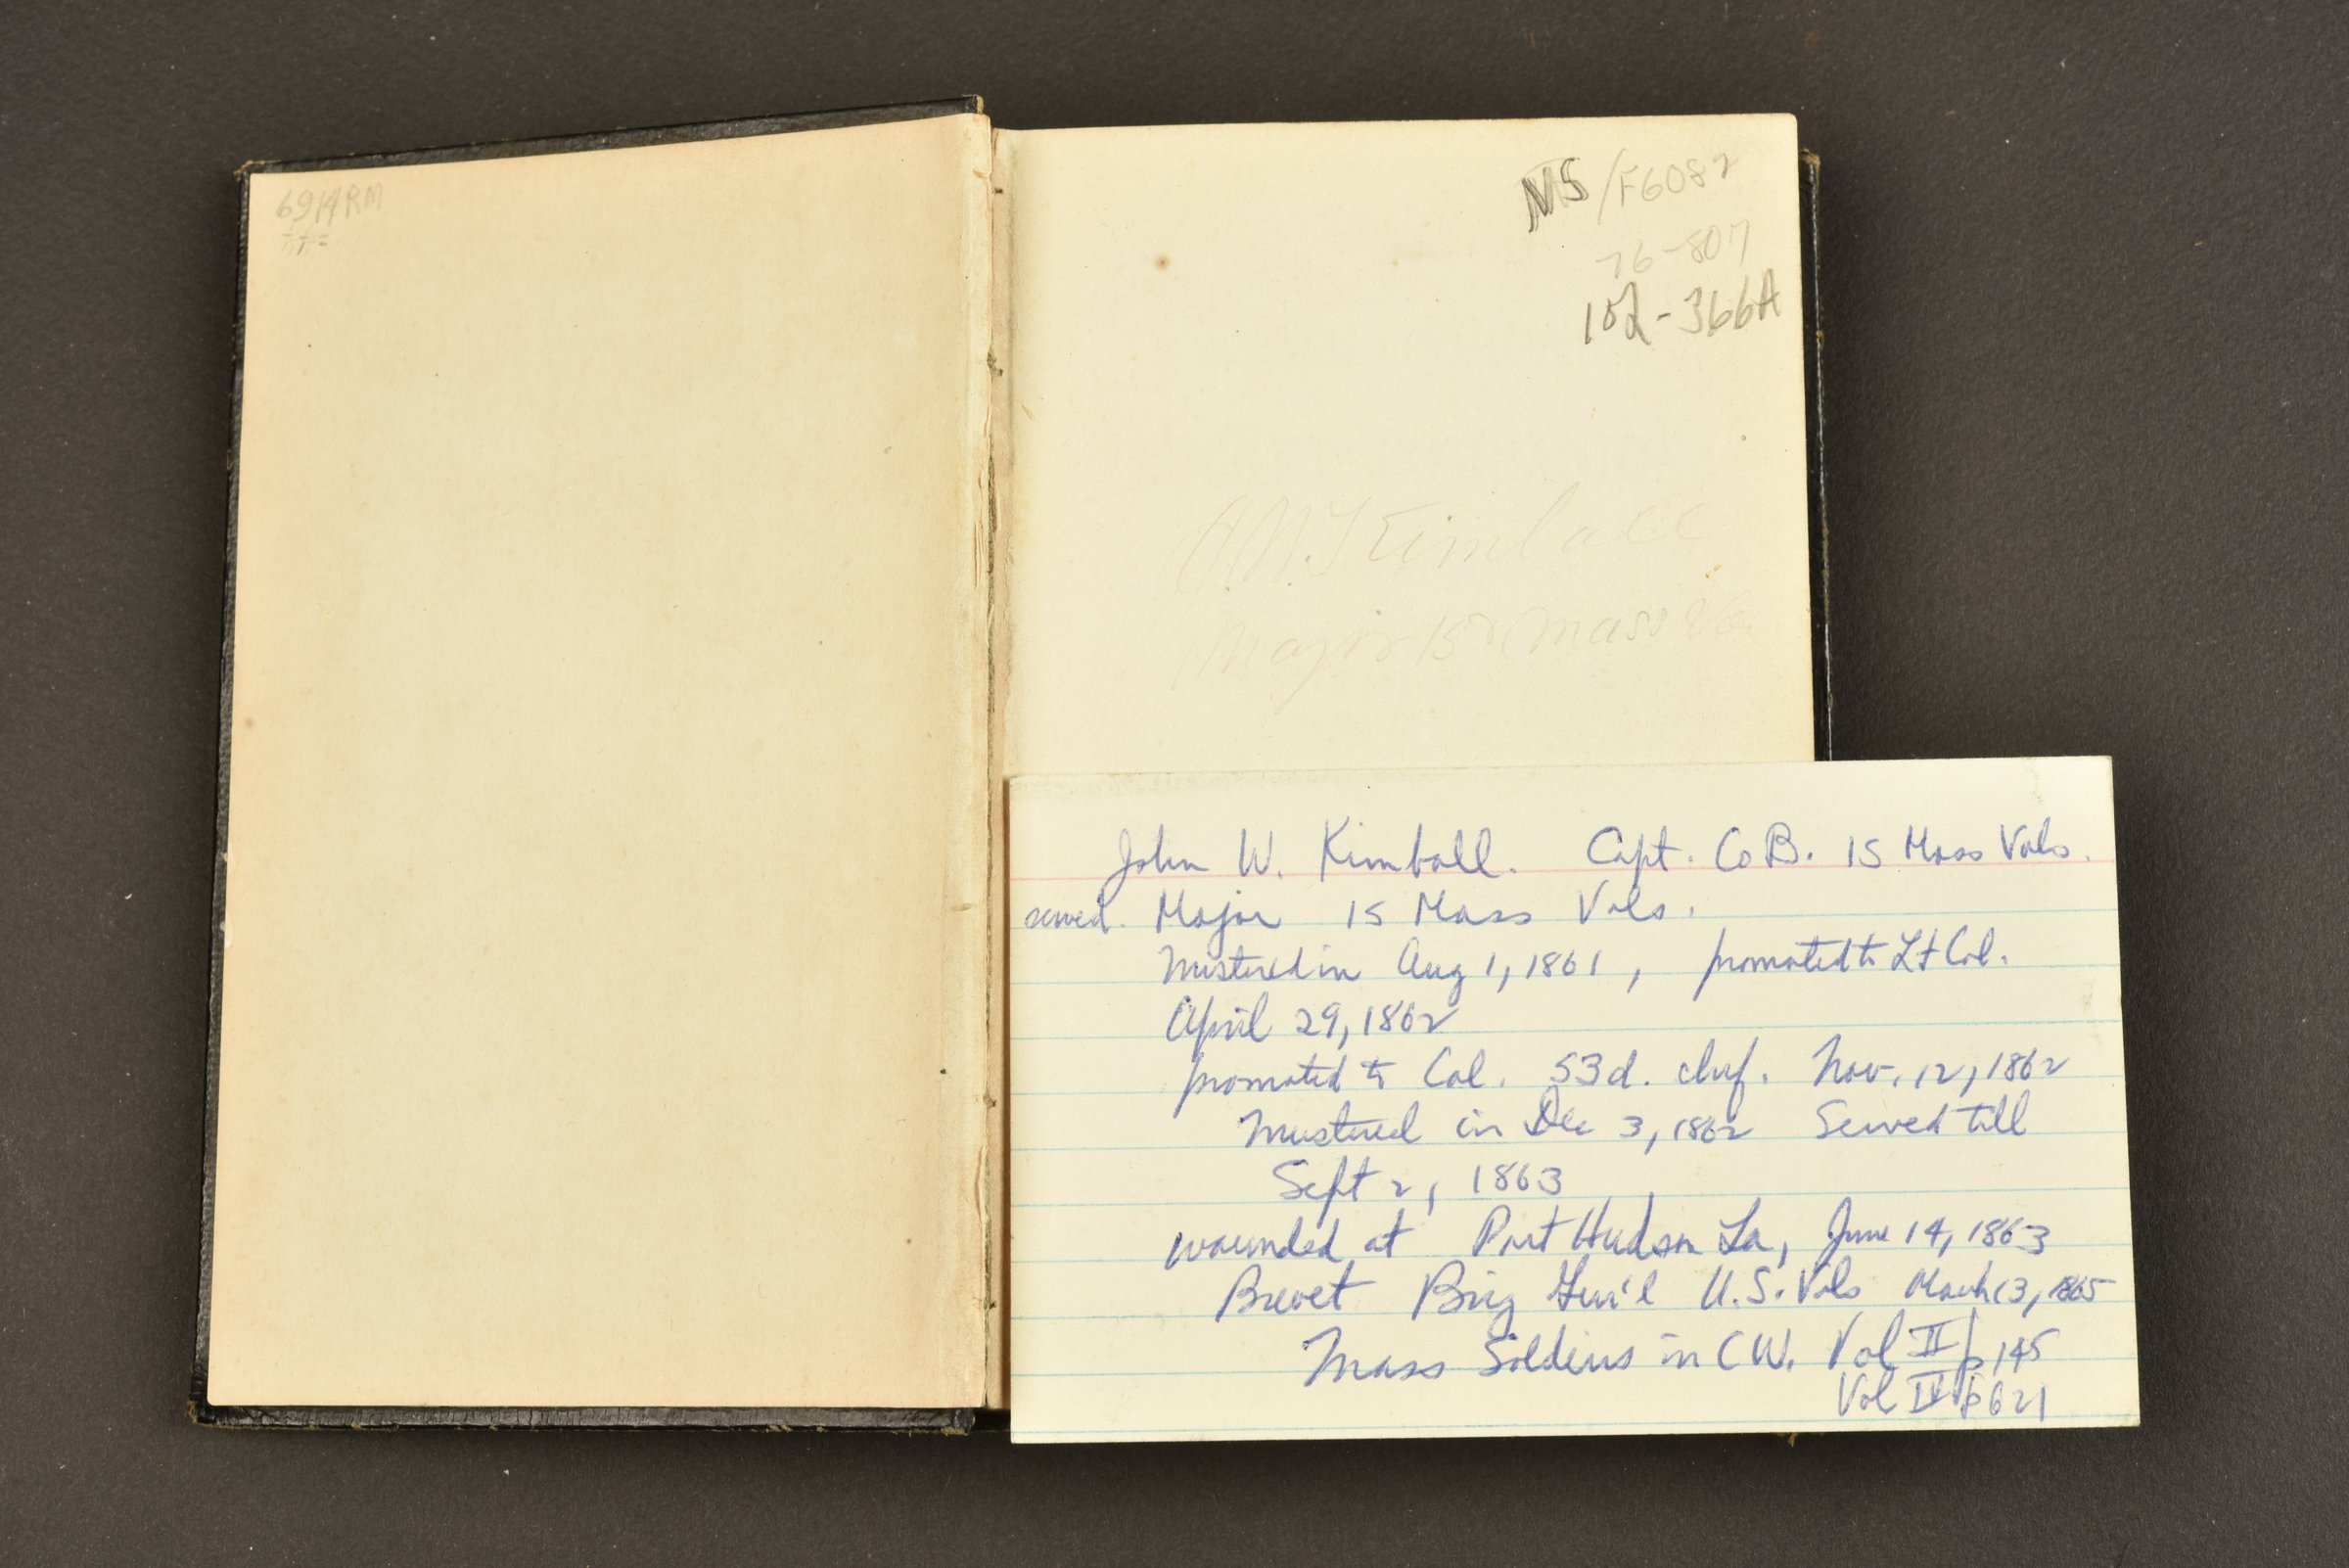 6914RM
MS/F6082
76-807
102-366A
J.W. Kimball
Major 15 Mass
John W. Kimball. Capt. Co B. 15 Mass Vols.
served. Major 15 Mass Vols.
Mustered in Aug 1, 1861, promoted to Lt Col.
April 29, 1862
promoted to Col. 53d. Inf. Nov. 12, 1862
Mustered in Dec 3, 1862 Served till
Sept 2, 1863
wounded at Port Hudson La, June 14, 1863
Brevet Brig Gen'l U.S. Vols March 13, 1865
Mass Soldiers in CW. Vol II p 145
Vol IV p 621